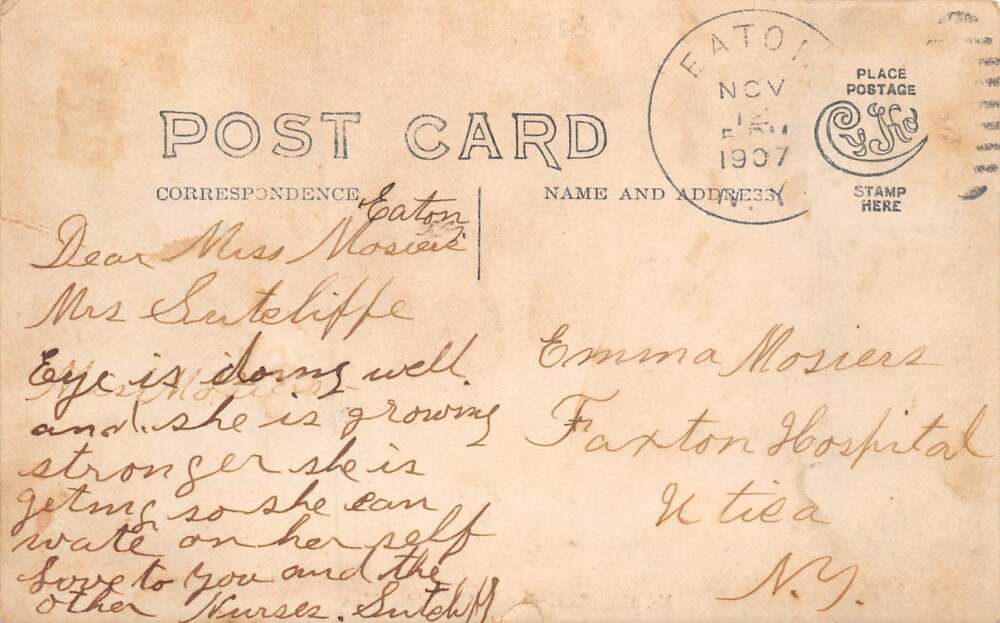 EATON
NOV
12
1907
N.Y.
PLACE
POSTAGE
CYKO
STAMP
HERE
POST CARD
CORRESPONDENCE
NAME AND ADDRESS
Eaton
Dear Miss Mosiers
Mrs Sutcliffe
Eye is doing well
and she is growing
stronger she is
geting so she can
wate on her self
Love to you and the
other Nurses. Sutcliff
Emma Mosiers
Faxton Hospital
Utica
N.Y.